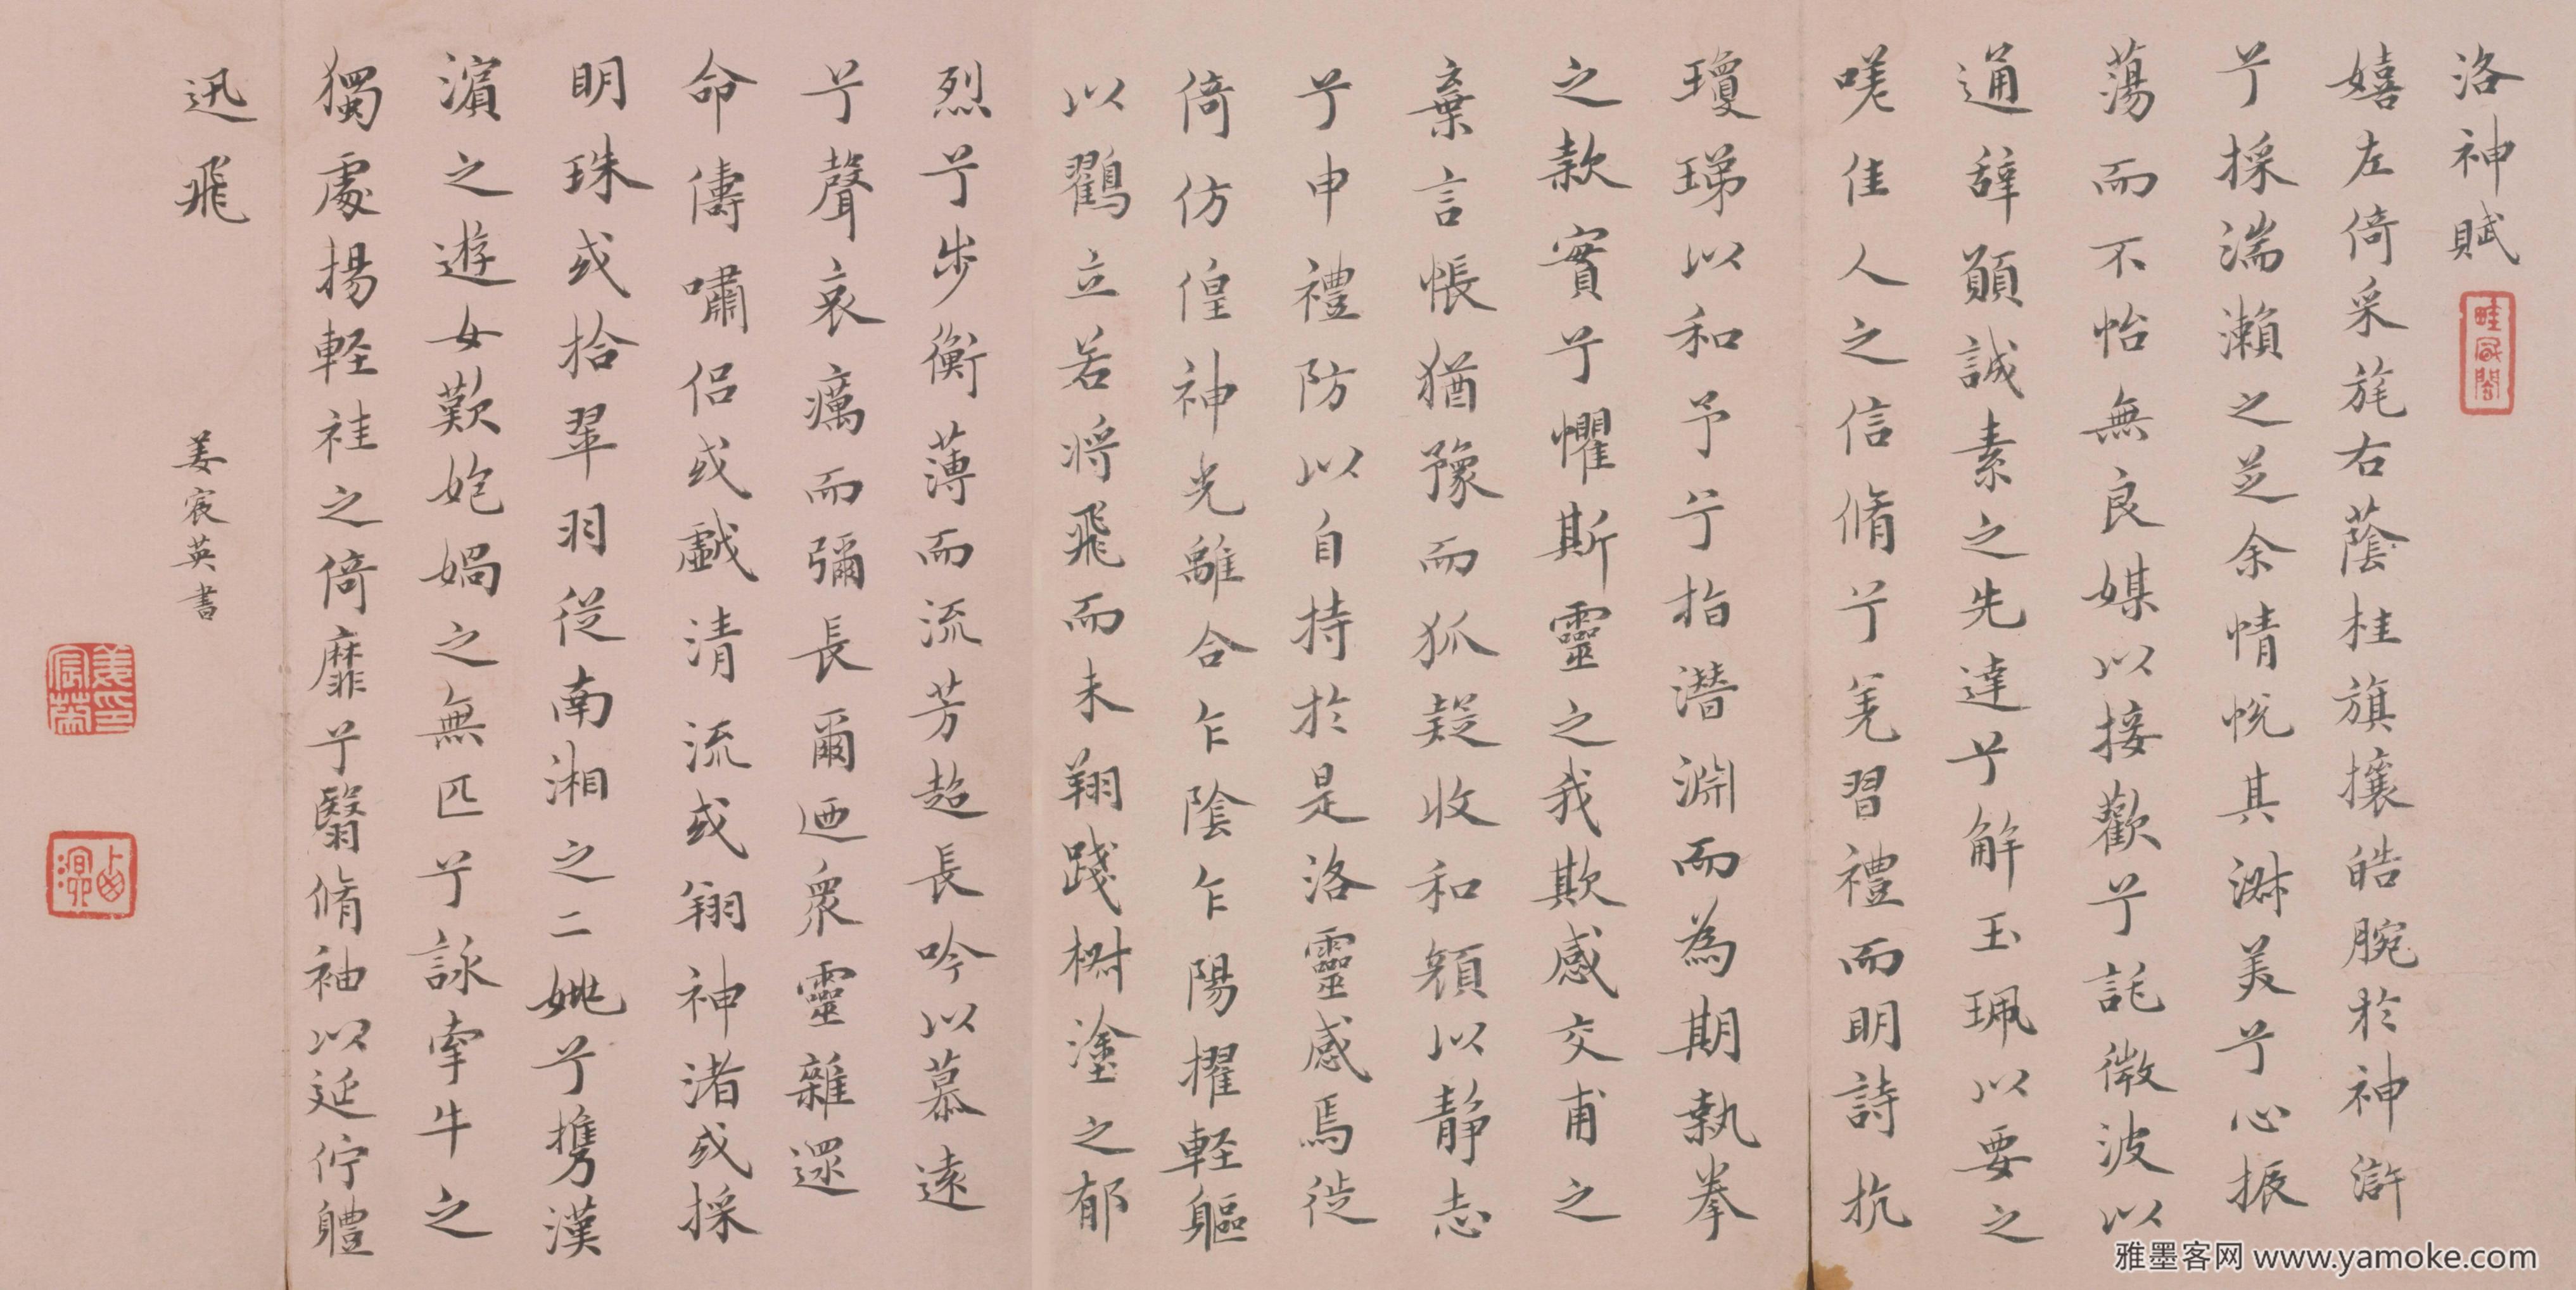 洛神賦
嬉左倚采旄右蔭桂旗攘皓腕於神滸
兮採湍瀨之芝余情悅其淑美兮心振
蕩而不怡無良媒以接歡兮託微波以
通辭願誠素之先達兮解玉珮以要之
嗟佳人之信脩兮羌習禮而明詩抗
瓊珶以和予兮指潛淵而為期執拳
之款實兮懼斯靈之我欺感交甫之
棄言悵猶豫而狐疑收和顏以靜志
兮申禮防以自持於是洛靈感焉徙
倚仿偟神光離合乍陰乍陽擢軽軀
以鸛立若將飛而未翔踐椒塗之郁
烈兮步衡薄而流芳超長吟以慕遠
兮聲哀癘而彌長爾迺眾靈雜遝
命儔嘯侶或戲清流或翔神渚或採
明珠或拾翠羽從南湘之二姚兮攜漢
濱之遊女歎匏媧之無匹兮詠牽牛之
獨處揚軽袿之倚靡兮翳脩袖以延佇體
迅飛
姜宸英書
姜宸英印
雅墨客网 www.yamoke.com